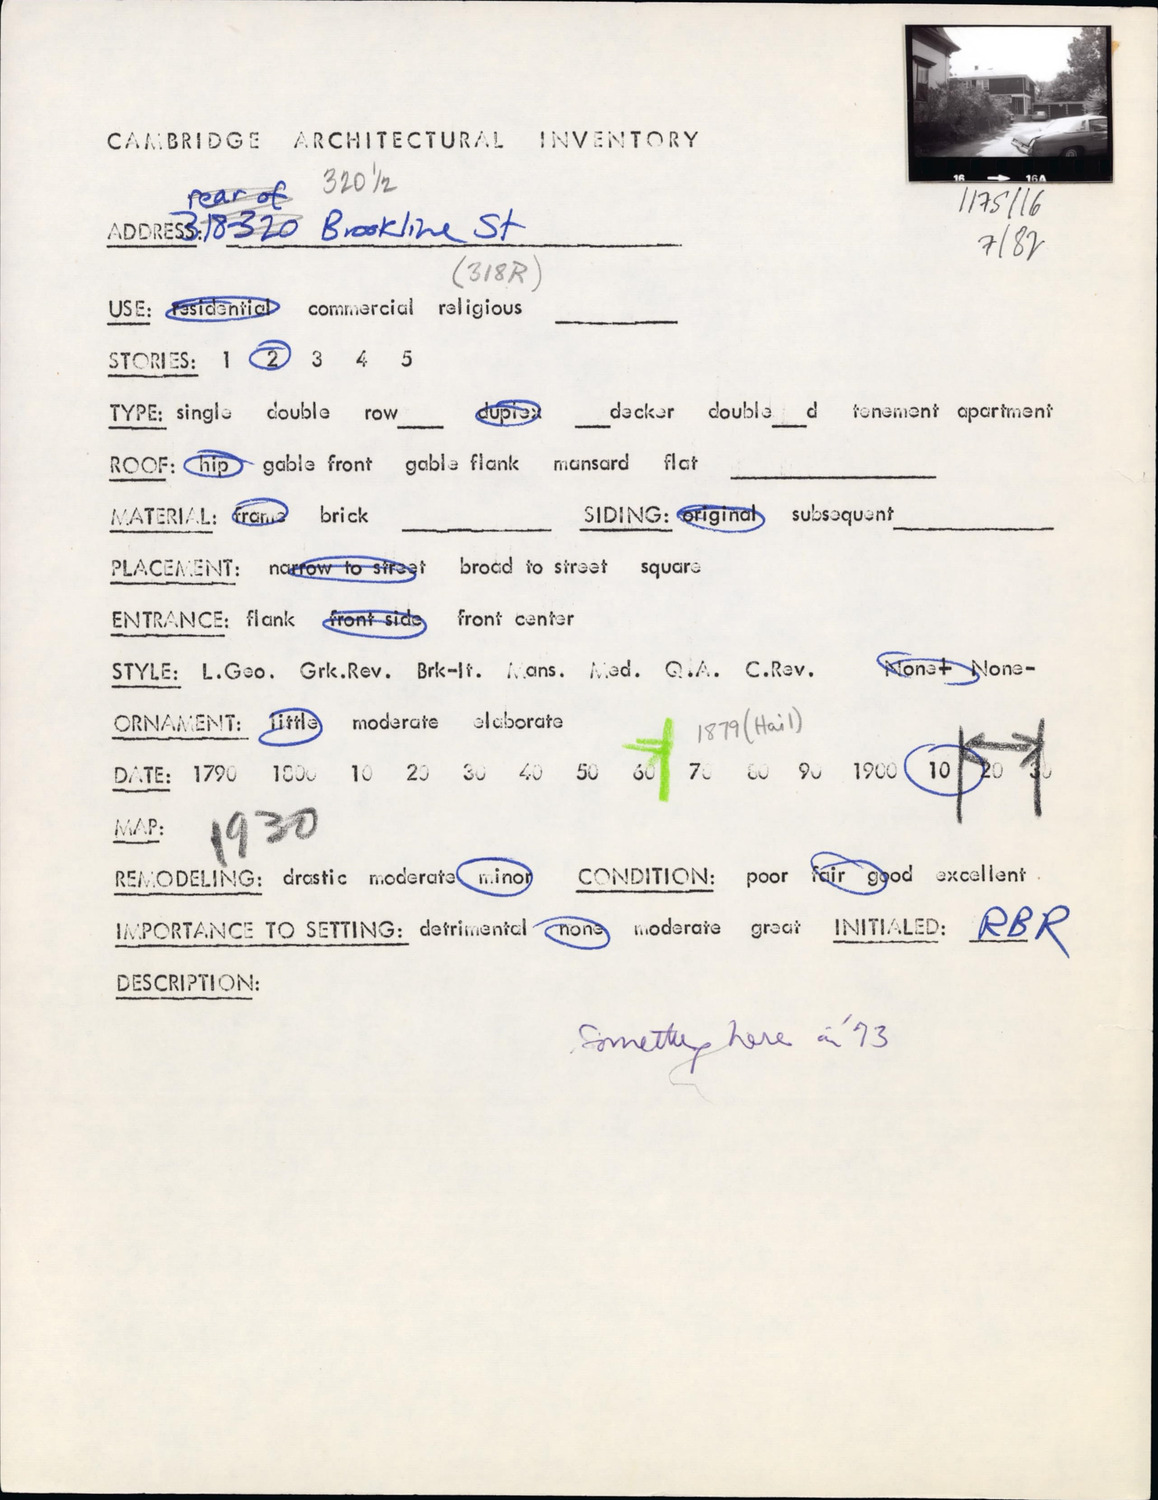 16 → 16A
1175/16
7/82
CAMBRIDGE ARCHITECTURAL INVENTORY
rear of 320 1/2
ADDRESS: 318-320 Brookline St
(318R)
USE: residential commercial religious
STORIES: 1 2 3 4 5
TYPE: single double row___ duplex ___decker double___d tenement apartment
ROOF: hip gable front gable flank mansard flat
MATERIAL: frame brick SIDING: original subsequent
PLACEMENT: narrow to street broad to street square
ENTRANCE: flank front side front center
STYLE: L.Geo. Grk.Rev. Brk-It. Mans. Med. Q.A. C.Rev. None+ None-
ORNAMENT: little moderate elaborate
1879 (Hail)
DATE: 1790 1800 10 20 30 40 50 60 70 80 90 1900 10 20 30
MAP: 1930
REMODELING: drastic moderate minor CONDITION: poor fair good excellent
IMPORTANCE TO SETTING: detrimental none moderate great INITIALED: RBR
DESCRIPTION:
Something here in '73